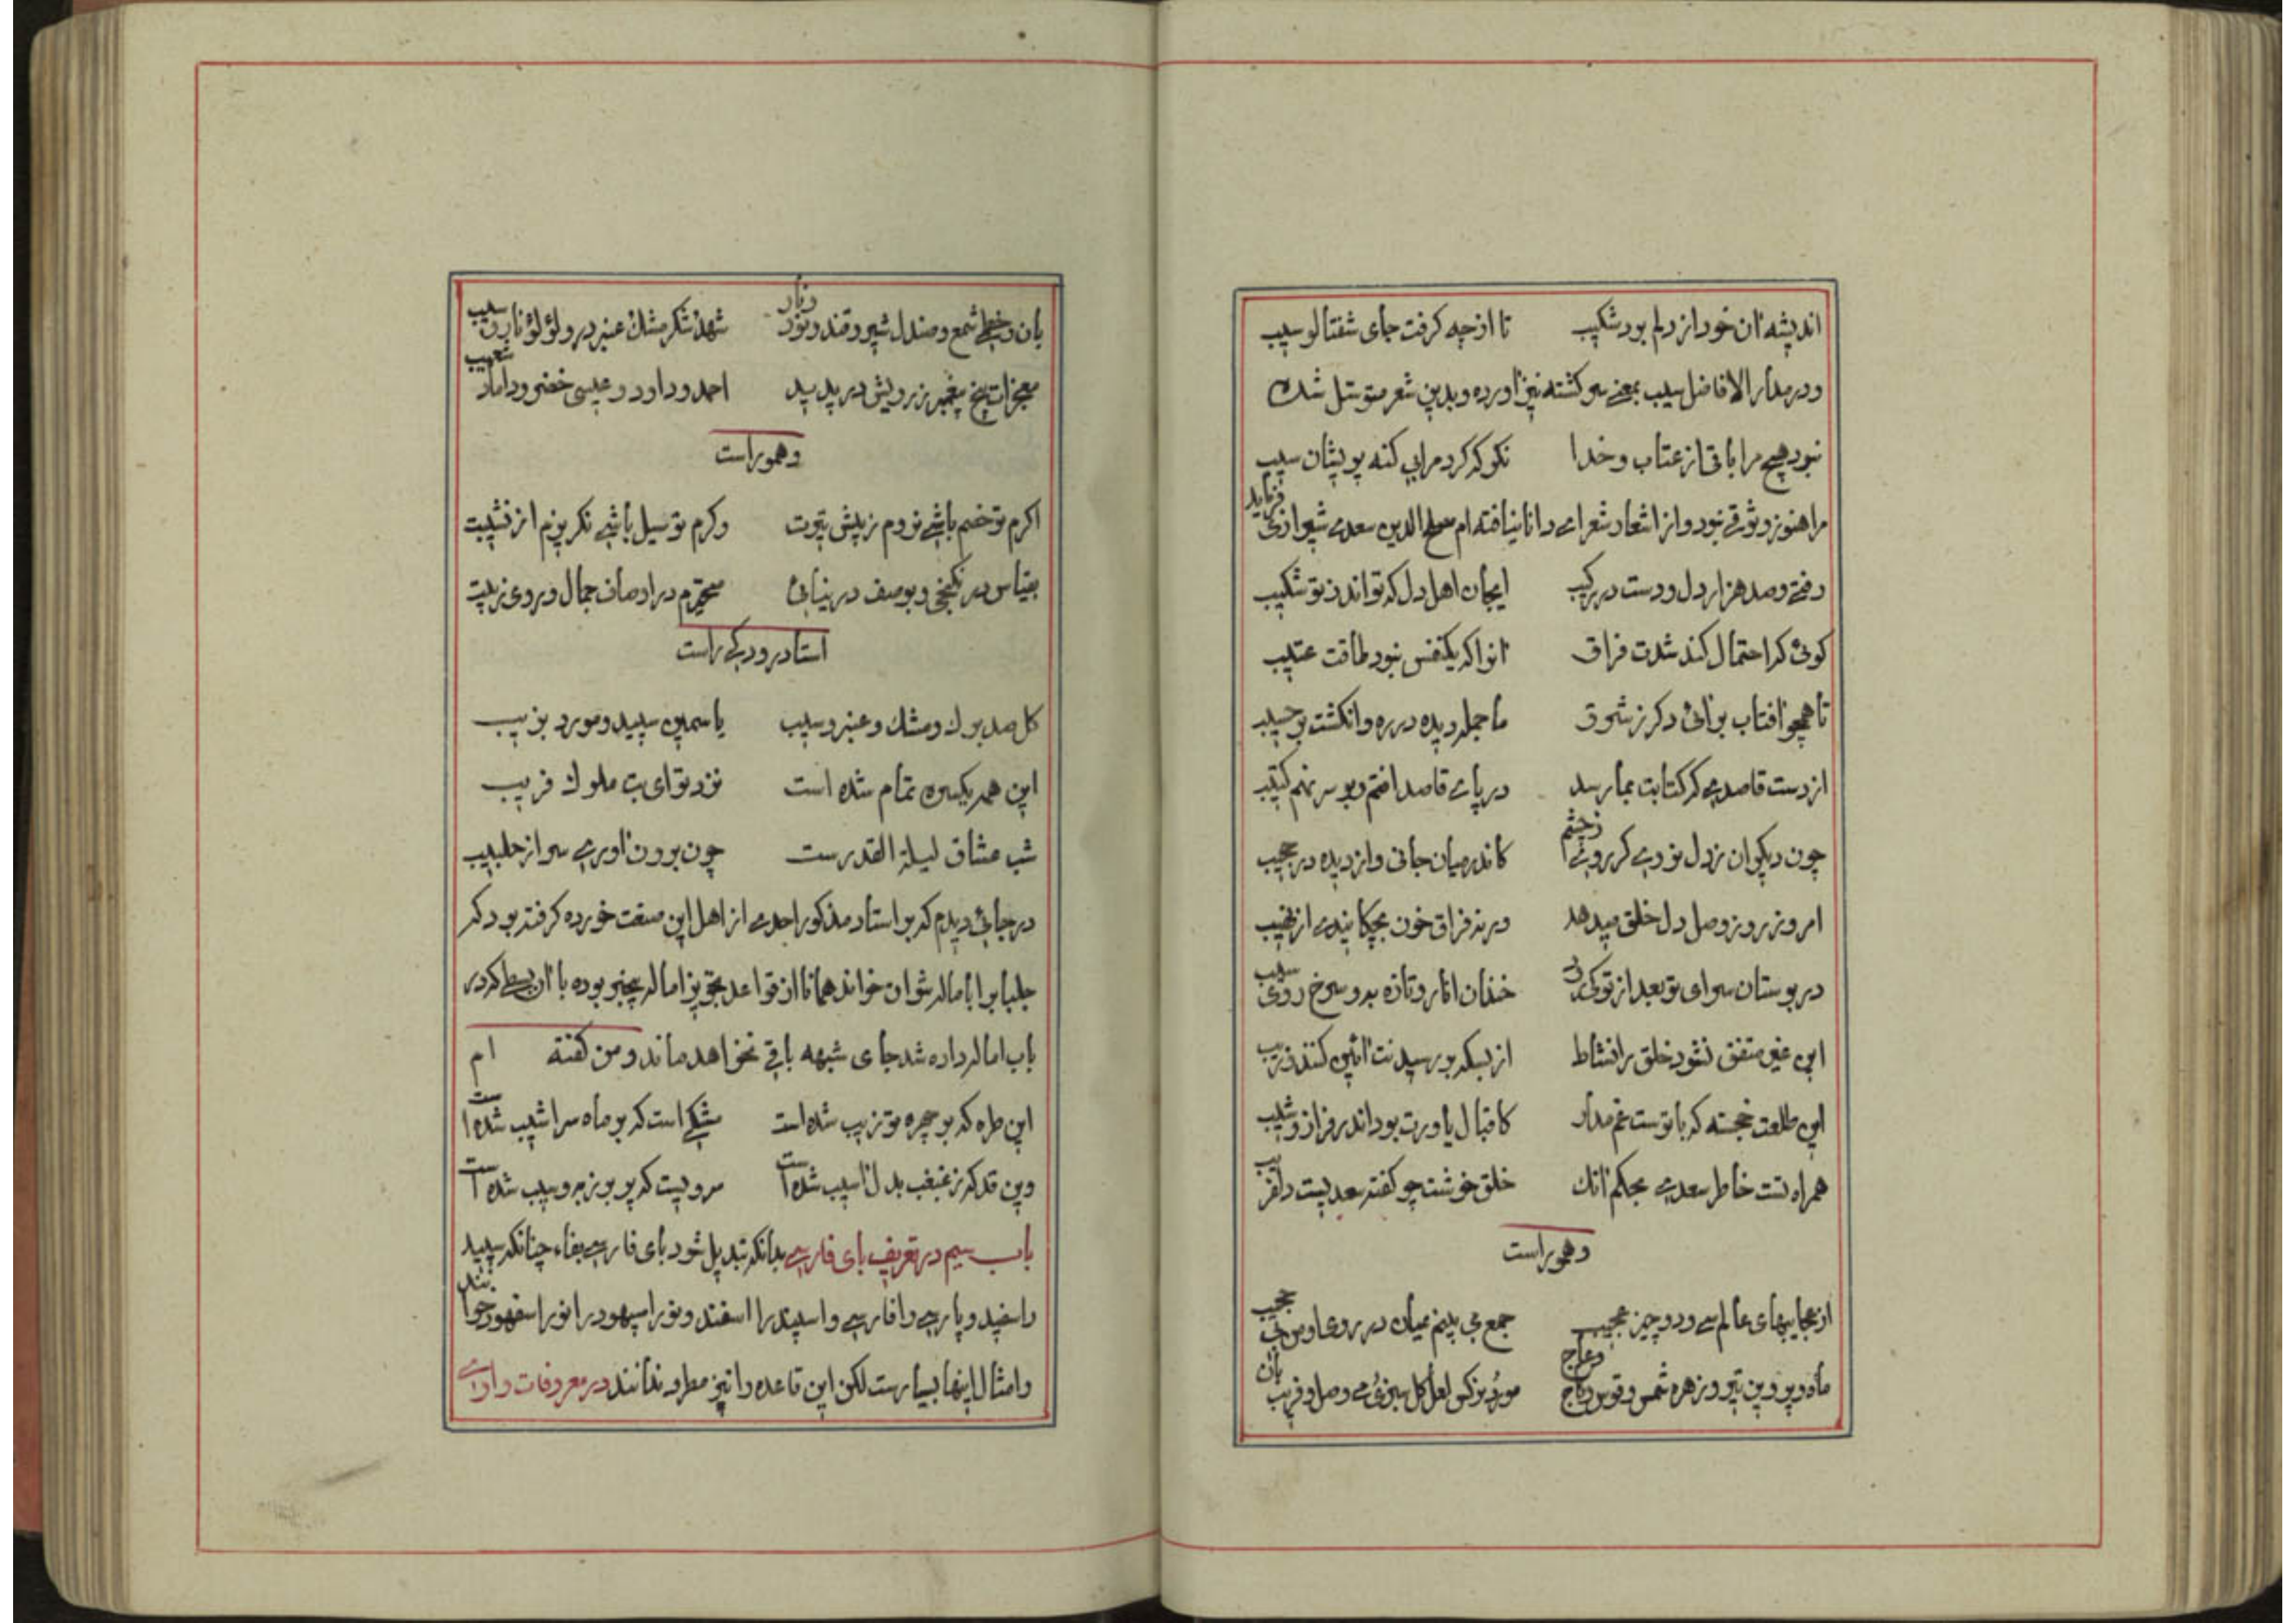 اندیشه آن خود از دلم بود شکیب تا از چه کرفت جای شفتالو سیب
و در مدار الافاضل سیب بمعنی سرکشته نیز آورده و بدین شعر متوسل شده
نبود هیچ مرا با تی از عتاب و خدا نکو که کرد مرا بی کنه پریشان سیب
مرا هنوز وثوقی نبود و از اشعار شعرای دانا نیافته ام مصلح الدین سعدی شیرازی فرماید
رفتی و صد هزار دل و دست در رکیب ای جان اهل دل که تواند ز تو شکیب
کوئی که احتمال کند شدت فراق آنرا که یکنفس نبود طاقت عتیب
تا همچو آفتاب برآئی دکر ز شرق ما جمله دیده در ره و انکشت بر حسیب
از دست قاصدی که کتابت بما رسد در پای قاصد افتم و بر سر نهم کتیب
چون دیکران ز دل نروی کر روی ز چشم کاندر میان جانی و از دیده در حجیب
امروز روز وصل دل خلق میدهد در روز فراق خون بچکانیدی از نهیب
در بوستان سرای تو بعد از تو کی بود خندان انار و تازه به و سرخ روی سیب
این عید متفق نشود خلق را نشاط از بسکه بر رسیدنت آئین کنند زیب
این طلعت خجسته که با تست غم مدار کاقبال یاورت بود اندر فراز و شیب
همراه تست خاطر سعدی بحکم آنک خلق خوشت چو کفته سعدیست دلفریب
و همو راست
از عجایبهای عالم سی و دو چیز عجیب جمع می بینم میان در روی او من بی حجیب
ماه و پروین تیر و زهره شمس و قوس و کاج و عاج مورد نرکس لعل کل سبزی می وصل و فریب
بان و خطی شمع و صندل شیر و قند و نور و نار شهد شکر مشک عنبر در و لؤلؤ نار و سیب
معجزات پنج پیغمبر ز رویش در پدید احمد و داود و عیسی خضر و داماد شعیب
و همو راست
اکرم تو خصم باشی نروم ز پیش تیرت وکرم تو سیل باشی نکریزم از نشیبت
بقیاس در نکنجی و بوصف در نیائی متحیرم در اوصاف جمال و روی زیبت
استاد رودکی راست
کل صد برك و مشك و عنبر و سیب یاسمین سپید و مورد بزیب
این همه یکسره تمام شده است نزد تو ای بت ملوك فریب
شب عشاق لیلة القدرست چون برون آوری سر از جلبیب
در جائی دیدم که بر استاد مذکور احدی از اهل این صنعت خورده کرفته بود که
جلباب را بامالہ نتوان خواند همانا از قواعد تجویز اماله بیخبر بوده با آن بسطی که در
باب اماله داده شد جای شبهه باقی نخواهد ماند و من کفته ام
این طره که بر چهره تو زیب شده است مشکی است که بر ماه سراشیب شده است
وین قد که ز غبغب بدل آسیب شده است سرویست که پر بر ز به و سیب شده است
باب سیم در تعریف بای فارسی بدانکه تبدیل شود بای فارسی بفاء چنانکه سپید
را سفید و پارسی را فارسی و اسپند را اسفند و نور اسپهود را نور اسفهود خوانند
و امثال اینها بسیارست لکن این قاعده را نیز مطرد ندانند در معروفات واوی